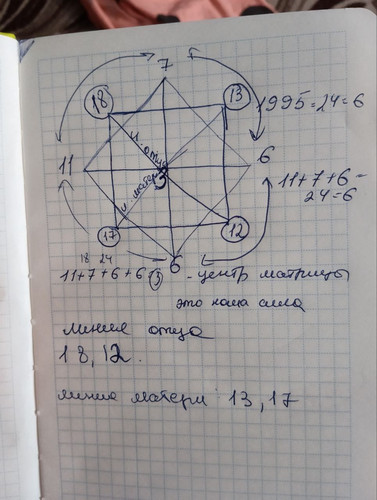 7
18
13
1995=24=6
л. отца
11
6
3
11+7+6=
24=6
л. матери
17
12
18 24
6
11+7+6+6 (3) - центр матрицы
это наша сила
линия отца
18, 12.
линия матери: 13, 17